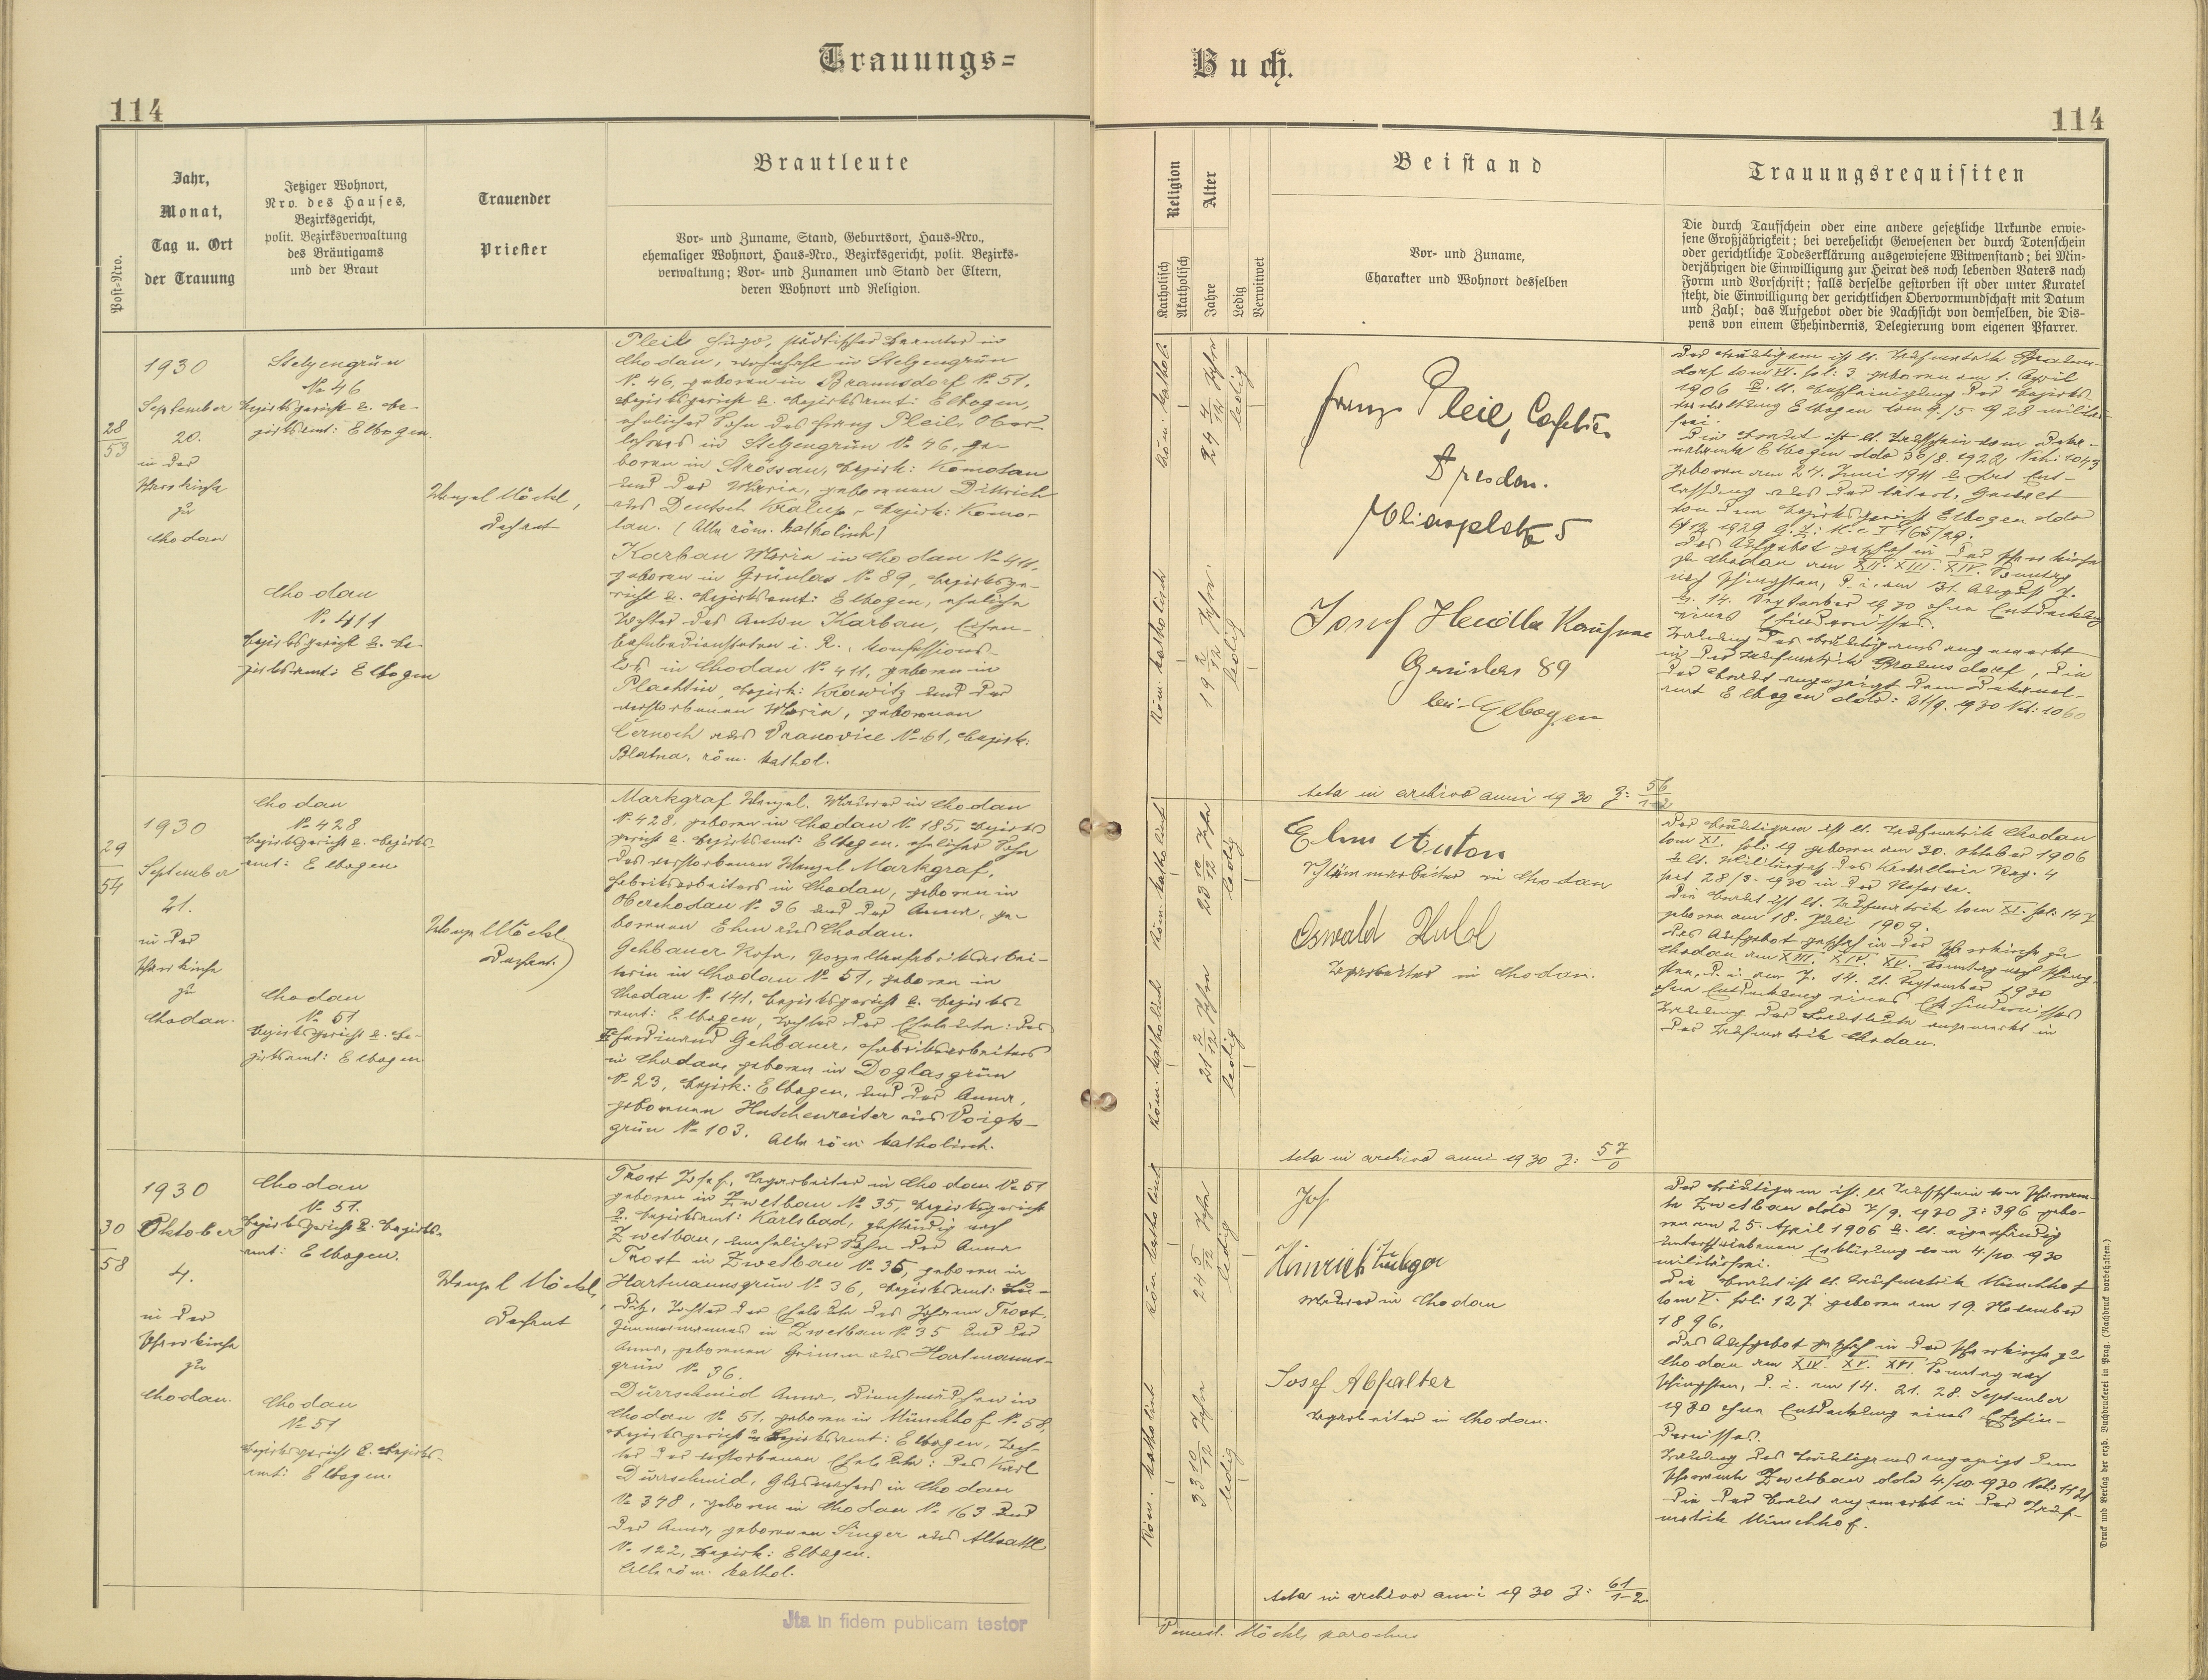 Trauungs=
Buch.
114
114
Post-Nro.
Jahr,
Monat,
Tag u. Ort
der Trauung
Jetziger Wohnort,
Nro. des Hauses,
Bezirksgericht,
polit. Bezirksverwaltung
des Bräutigams
und der Braut
Trauender
Priester
Brautleute
Vor- und Zuname, Stand, Geburtsort, Haus-Nro.,
ehemaliger Wohnort, Haus-Nro., Bezirksgericht, polit. Bezirks-
verwaltung; Vor- und Zunamen und Stand der Eltern,
deren Wohnort und Religion.
Religion
Katholisch
Akatholisch
Alter
Jahre
Ledig
Verwitwet
Beistand
Vor- und Zuname,
Charakter und Wohnort desselben
Trauungsrequisiten
Die durch Taufschein oder eine andere gesetzliche Urkunde erwie-
sene Großjährigkeit; bei verehelicht Gewesenen der durch Totenschein
oder gerichtliche Todeserklärung ausgewiesene Witwenstand; bei Min-
derjährigen die Einwilligung zur Heirat des noch lebenden Vaters nach
Form und Vorschrift; falls derselbe gestorben ist oder unter Kuratel
steht, die Einwilligung der gerichtlichen Obervormundschaft mit Datum
und Zahl; das Aufgebot oder die Nachsicht von demselben, die Dis-
pens von einem Ehehindernis, Delegierung vom eigenen Pfarrer.
28
53
1930
September
20.
in der
Pfarrkirche
zu
Chodau
Stelzengrün
No 46
Bezirksgericht u. Be-
zirksamt: Elbogen.
Chodau
No 411
Bezirksgericht u. Be-
zirksamt: Elbogen
Wenzel Möckl,
Dechant
Pleil Hugo, städtischer Beamter in
Chodau, wohnhaft in Stelzengrün
No 46, geboren in Braunsdorf No 51,
Bezirksgericht u. Bezirksamt: Elbogen,
ehelicher Sohn des Franz Pleil, Ober-
lehrers in Stelzengrün No 46, ge-
boren in Strössau, Bezirk: Komotau
und der Maria, geborenen Dittrich
aus Deutsch Kralup, Bezirk: Komo-
tau. (Alle röm. katholisch)
Karban Maria in Chodau No 411,
geboren in Grünlas No 89, Bezirksge-
richt u. Bezirksamt: Elbogen, eheliche
Tochter des Anton Karban, Eisen-
bahnbediensteten i. R., konfessions-
los in Chodau No 411, geboren in
Plachtin, Bezirk: Kralowitz und der
verstorbenen Maria, geborenen
Černoch aus Vranovice No 61, Bezirk:
Blatna, röm. kathol.
Röm. kathol.
24 4/12 Jahre
ledig
Röm. katholisch
19 2/12 Jahre
ledig
Franz Pleil, Cafetier
Dresden.
Josef
Grünlas 89
bei Elbogen
Acta in archivo anni 1930 Z: 56/1-2
Der Bräutigam ist lt. Taufmatrik Brauns-
dorf tom VI. fol: 3 geboren am 1. April
1906 u. lt. Bescheinigung der Bezirks-
verwaltung Elbogen vom 9./5. 1928 militär-
frei.
Die Braut ist lt. Taufschein vom Deka-
geboren am 24. Juni 1911 u. lt. Ent-
lassung aus der väterl. Gewalt
von dem Bezirksgericht Elbogen ddo
Das Aufgebot geschah in der Pfarrkirche
zu Chodau am XII. XIII. XIV. Sonntag
nach Pfingsten, d. i. am 31. August 7.
u. 14. September 1930 ohne Entdeckung
eines Ehehindernisses.
Trauung des Bräutigams angemerkt
in der Taufmatrik Braunsdorf, die
der Braut angezeigt dem Dekanal-
amt Elbogen ddo: 21/9. 1930 Nch: 1060
29
54
1930
September
21.
in der
Pfarrkirche
zu
Chodau.
Chodau
No 428
Bezirksgericht u. Bezirks-
amt: Elbogen
Chodau
No 51
Bezirksgericht u. Be-
zirksamt: Elbogen
Wenzel Möckl
Dechant.
Markgraf Wenzel, Maurer in Chodau
No 428, geboren in Chodau No 185, Bezirks-
gericht u. Bezirksamt: Elbogen, ehelicher Sohn
des verstorbenen Wenzel Markgraf,
Fabriksarbeiters in Chodau, geboren in
Oberchodau No 36 und der Anna, ge-
borenen Ehm aus Chodau.
Gehbauer Rosa, Porzellanfabriksarbei-
terin in Chodau No 51, geboren in
Chodau No 141, Bezirksgericht u. Bezirks-
amt: Elbogen, Tochter der Eheleute: des
Ferdinand Gehbauer, Fabriksarbeiters
in Chodau, geboren in Doglasgrün
No 23, Bezirk: Elbogen, und der Anna,
geborenen Hutschenreiter aus Voigts-
grün No 103. Alle röm. katholisch.
Röm. katholisch
23 10/12 Jahre
ledig
Röm. katholisch
21 2/12 Jahre
ledig
Ehm Anton
in Chodau
Oswald
Tagarbeiter in Chodau.
Acta in archivo anni 1930 Z: 57/0
Der Bräutigam ist lt. Taufmatrik Chodau
tom XI. fol: 19 geboren am 30. Oktober 1906
seit 28/3. 1930 in der Reserve.
Die Braut ist lt. Taufmatrik tom XI. fol: 147
geboren am 18. Juli 1909.
Das Aufgebot geschah in der Pfarrkirche zu
Chodau am XIII. XIV. XV. Sonntag nach Pfing-
sten, d. i. am 7. 14. 21. September 1930
ohne Entdeckung eines Ehehindernisses
Trauung der Brautleute angemerkt in
der Taufmatrik Chodau.
30
58
1930
Oktober
4.
in der
Pfarrkirche
zu
Chodau.
Chodau
No 51.
Bezirksgericht u. Bezirks-
amt: Elbogen.
Chodau
No 51
Bezirksgericht u. Bezirks-
amt: Elbogen.
Wenzel Möckl,
Dechant
Trost Josef, Tagarbeiter in Chodau No 51
geboren in Zwetbau No 35, Bezirksgericht
u. Bezirksamt: Karlsbad, zuständig nach
Zwetbau, unehelicher Sohn der Anna
Trost in Zwetbau No 35, geboren in
Hartmannsgrün No 36, Bezirksamt: Lu-
ditz, Tochter der Eheleute des Johann Trost,
Zimmermannes in Zwetbau No 35 und der
Anna, geborenen Grimm aus Hartmanns-
grün No 36.
Dürrschmid Anna, Dienstmädchen in
Chodau No 51, geboren in Münchhof No 58,
Bezirksgericht u. Bezirksamt: Elbogen, Toch-
ter der verstorbenen Eheleute: des Karl
Dürrschmid, Glasmachers in Chodau
No 348, geboren in Chodau No 163 und
der Anna, geborenen Singer aus Altsattl
No 122, Bezirk: Elbogen.
Alle röm. kathol.
Röm. katholisch
24 5/12 Jahre
ledig
Röm. katholisch
33 10/12 Jahre
ledig
Jos.
Heinrich
Maurer in Chodau
Josef Abfalter
Tagarbeiter in Chodau.
Acta in archivo anni 1930 Z: 61/1-2
Der Bräutigam ist lt. Taufschein vom Pfarram-
te Zwetbau ddo 7/9. 1930 Z: 396 gebo-
ren am 25. April 1906 u. lt. eigenhändig
unterschriebenen Erklärung vom 4./10. 1930
militärfrei.
Die Braut ist lt. Taufmatrik Münchhof
tom V. fol: 127 geboren am 19. November
1896.
Das Aufgebot geschah in der Pfarrkirche zu
Chodau am XIV. XV. XVI. Sonntag nach
Pfingsten, d. i. am 14. 21. 28. September
1930 ohne Entdeckung eines Ehehin-
dernisses.
Trauung des Bräutigams angezeigt dem
Pfarramte Zwetbau ddo 4/10 1930 Nch: 1121
die der Braut angemerkt in der Tauf-
matrik Münchhof.
Jta in fidem publicam testor
Wenzesl. Möckl, parochus
Druck und Verlag der erzb. Buchdruckerei in Prag. (Nachdruck vorbehalten.)